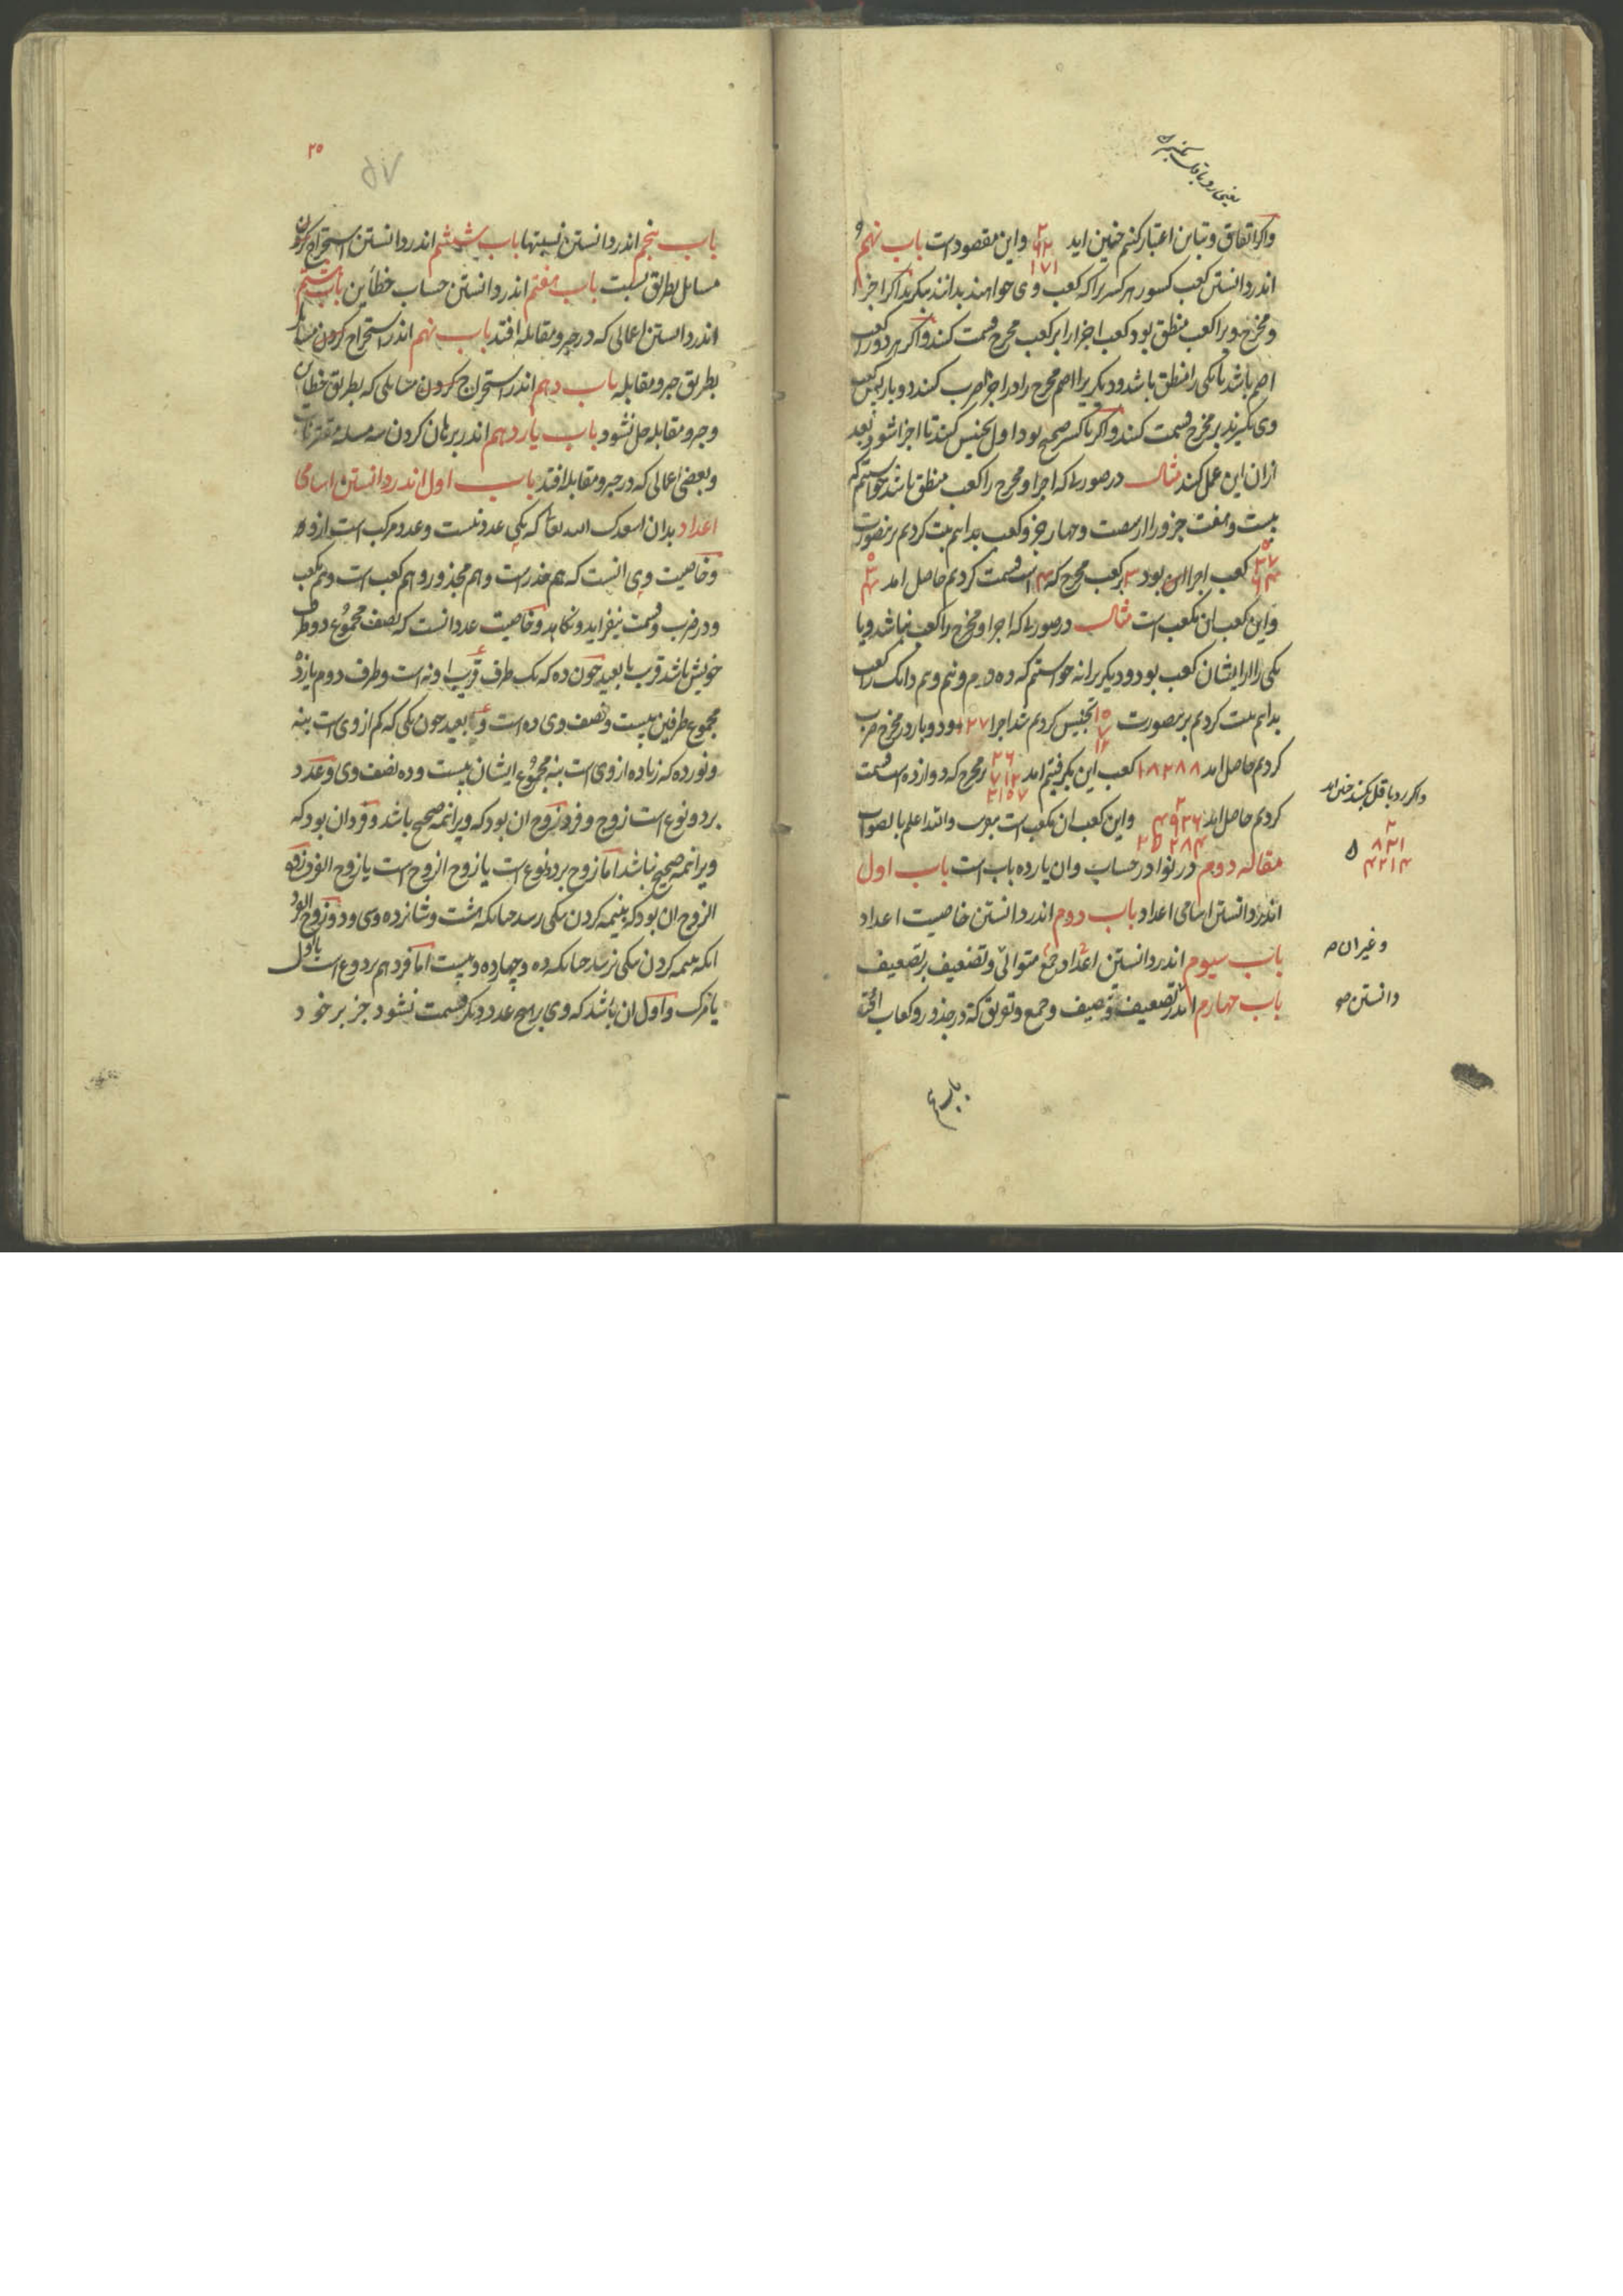 واکر اتفاق و تباین اعتبار کنیم چنین اید ۲ ۹۲ ۱۷۱ واین مقصودست باب نهم
اندر دانستن کعب کسور هر کسریرا که کعب وی خواهند بدانند بنکرند اکر اجزا
و مخرج ویرا کعب منطق بود کعب اجزا را بر کعب مخرج قسمت کنند واکر هر دو را کعب
اصم باشد یا یکی را منطق باشد و دیکریرا اصم مخرج را در اجزا ضرب کنند دوبار پس کعب
وی بکیرند بر مخرج قسمت کنند واکر با کسر صحیح بود اول تجنیس کنند تا اجزا شود بعد
ازان این عمل کنند مثال در صورتی که اجزا و مخرج را کعب منطق باشد خواستیم که
بیست و هفت جزو را از شصت و چهار جزو کعب بدانیم ثبت کردیم برینصورت
۲۷ ۶۴ کعب اجزا این بود ۳ بر کعب مخرج که ۴ است قسمت کردیم حاصل امد ۳ ۴
واین کعب ان مکعب است مثال در صورتی که اجزا و مخرج را کعب نباشد ویا
یکی را از ایشان کعب بود و دیکریرا نه خواستیم که ده درم و نیم و نیم دانک را کعب
بدانیم ثبت کردیم برینصورت ۱۰ ۷ ۱۲ تجنیس کردیم شد اجزا ۱۲۷ و دوبار در مخرج ضرب
کردیم حاصل امد ۱۸۲۸۸ کعب این بکرفتیم امد ۲۶ ۷۱۲ ۲۱۰۷ بر مخرج که دوازده است قسمت
کردیم حاصل امد ۲ ۴۹۲۶ ۲۵۲۸۴ واین کعب ان مکعب است بتقریب والله اعلم بالصواب
مقاله دوم در نوادر حساب وان یازده باب است باب اول
اندر دانستن اسامی اعداد باب دوم اندر دانستن خاصیت اعداد
باب سیوم اندر دانستن اعداد جمع متوالی و تضعیف بر تضعیف
باب چهارم اندر تضعیف و تنصیف و جمع و تفریق که در جذور و کعاب افتد
واکر رد باقل کنند چنین اید
۲
۸۳۱
۴۲۱۴
و غیر ان
دانستن
باب پنجم اندر دانستن نسبتها باب ششم اندر دانستن استخراج کردن
مسایل بطریق نسبت باب هفتم اندر دانستن حساب خطأین باب هشتم
اندر دانستن اعمالی که در جبر و مقابله افتد باب نهم اندر استخراج کردن مسایل
بطریق جبر و مقابله باب دهم اندر استخراج کردن مسایلی که بطریق خطاین
و جبر و مقابله حل نشود باب یازدهم اندر برهان کردن سه مسله مقترنات
و بعضی اعمالی که در جبر و مقابله افتد باب اول اندر دانستن اسامی
اعداد بدان اسعدک الله تعا که یکی عدد نیست و عدد مرکب است ازو
و خاصیت وی انست که هم جذرست و هم مجذور و هم کعب است و هم مکعب
و در ضرب و قسمت نیفزاید و نکاهد و خاصیت عدد انست که نصف مجموع دو طرف
خویش باشد قریب یا بعید چون ده که یک طرف قریب او نه است و طرف دوم یازده
مجموع طرفین بیست و نصف وی ده است و بعید چون یکی که کم از وی است بنه
و نوزده که زیاده از وی است بنه مجموع ایشان بیست و ده نصف وی و عدد
بر دو نوع است زوج و فرد زوج ان بود که ویرا نیمه صحیح باشد و فرد ان بود که
ویرا نیمه صحیح نباشد اما زوج بر دو نوع است یا زوج الزوج است یا زوج الفرد زوج
الزوج ان بود که بنیمه کردن بیکی رسد چنانکه هشت و شانزده و سی و دو و زوج الفرد
انکه بنیمه کردن بیکی نرسد چنانکه ده و چهارده و بیست اما فرد هم بر دو نوع است یا اول
یا مرکب و اول ان باشد که وی بر هیچ عدد دیکر قسمت نشود جز بر خود